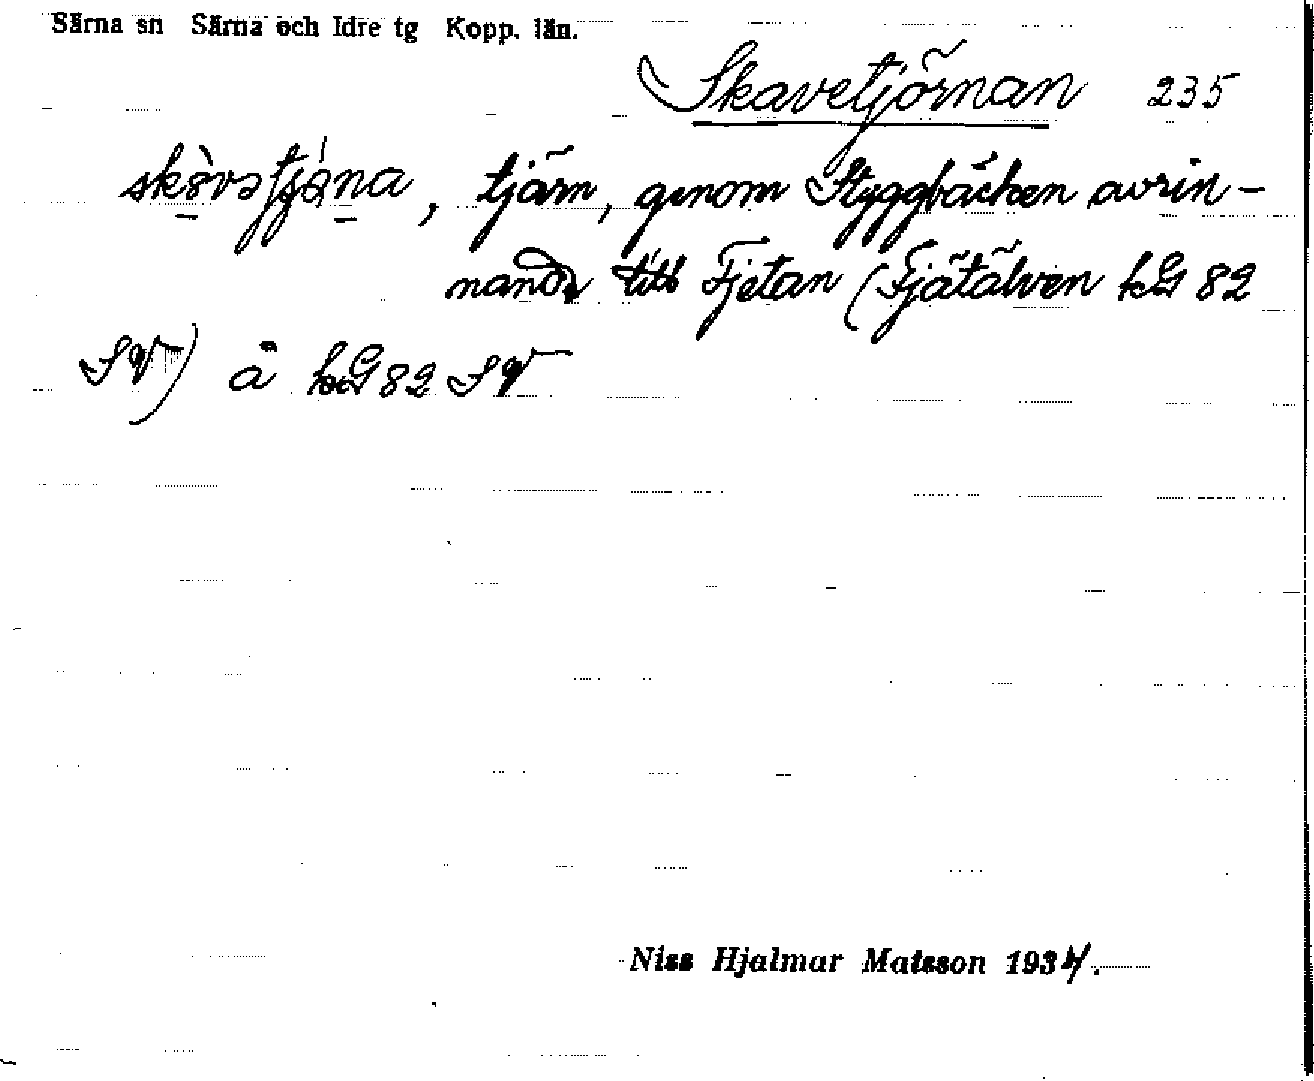 Särna sn Särna och Idre tg Kopp. län.
Skavetjörnan 235
tjärn, genom Styggbäcken avrin-
nande till Fjetan (Fjätälven kG 82
SV) å kG 82 SV
Niss Hjalmar Matsson 1934.